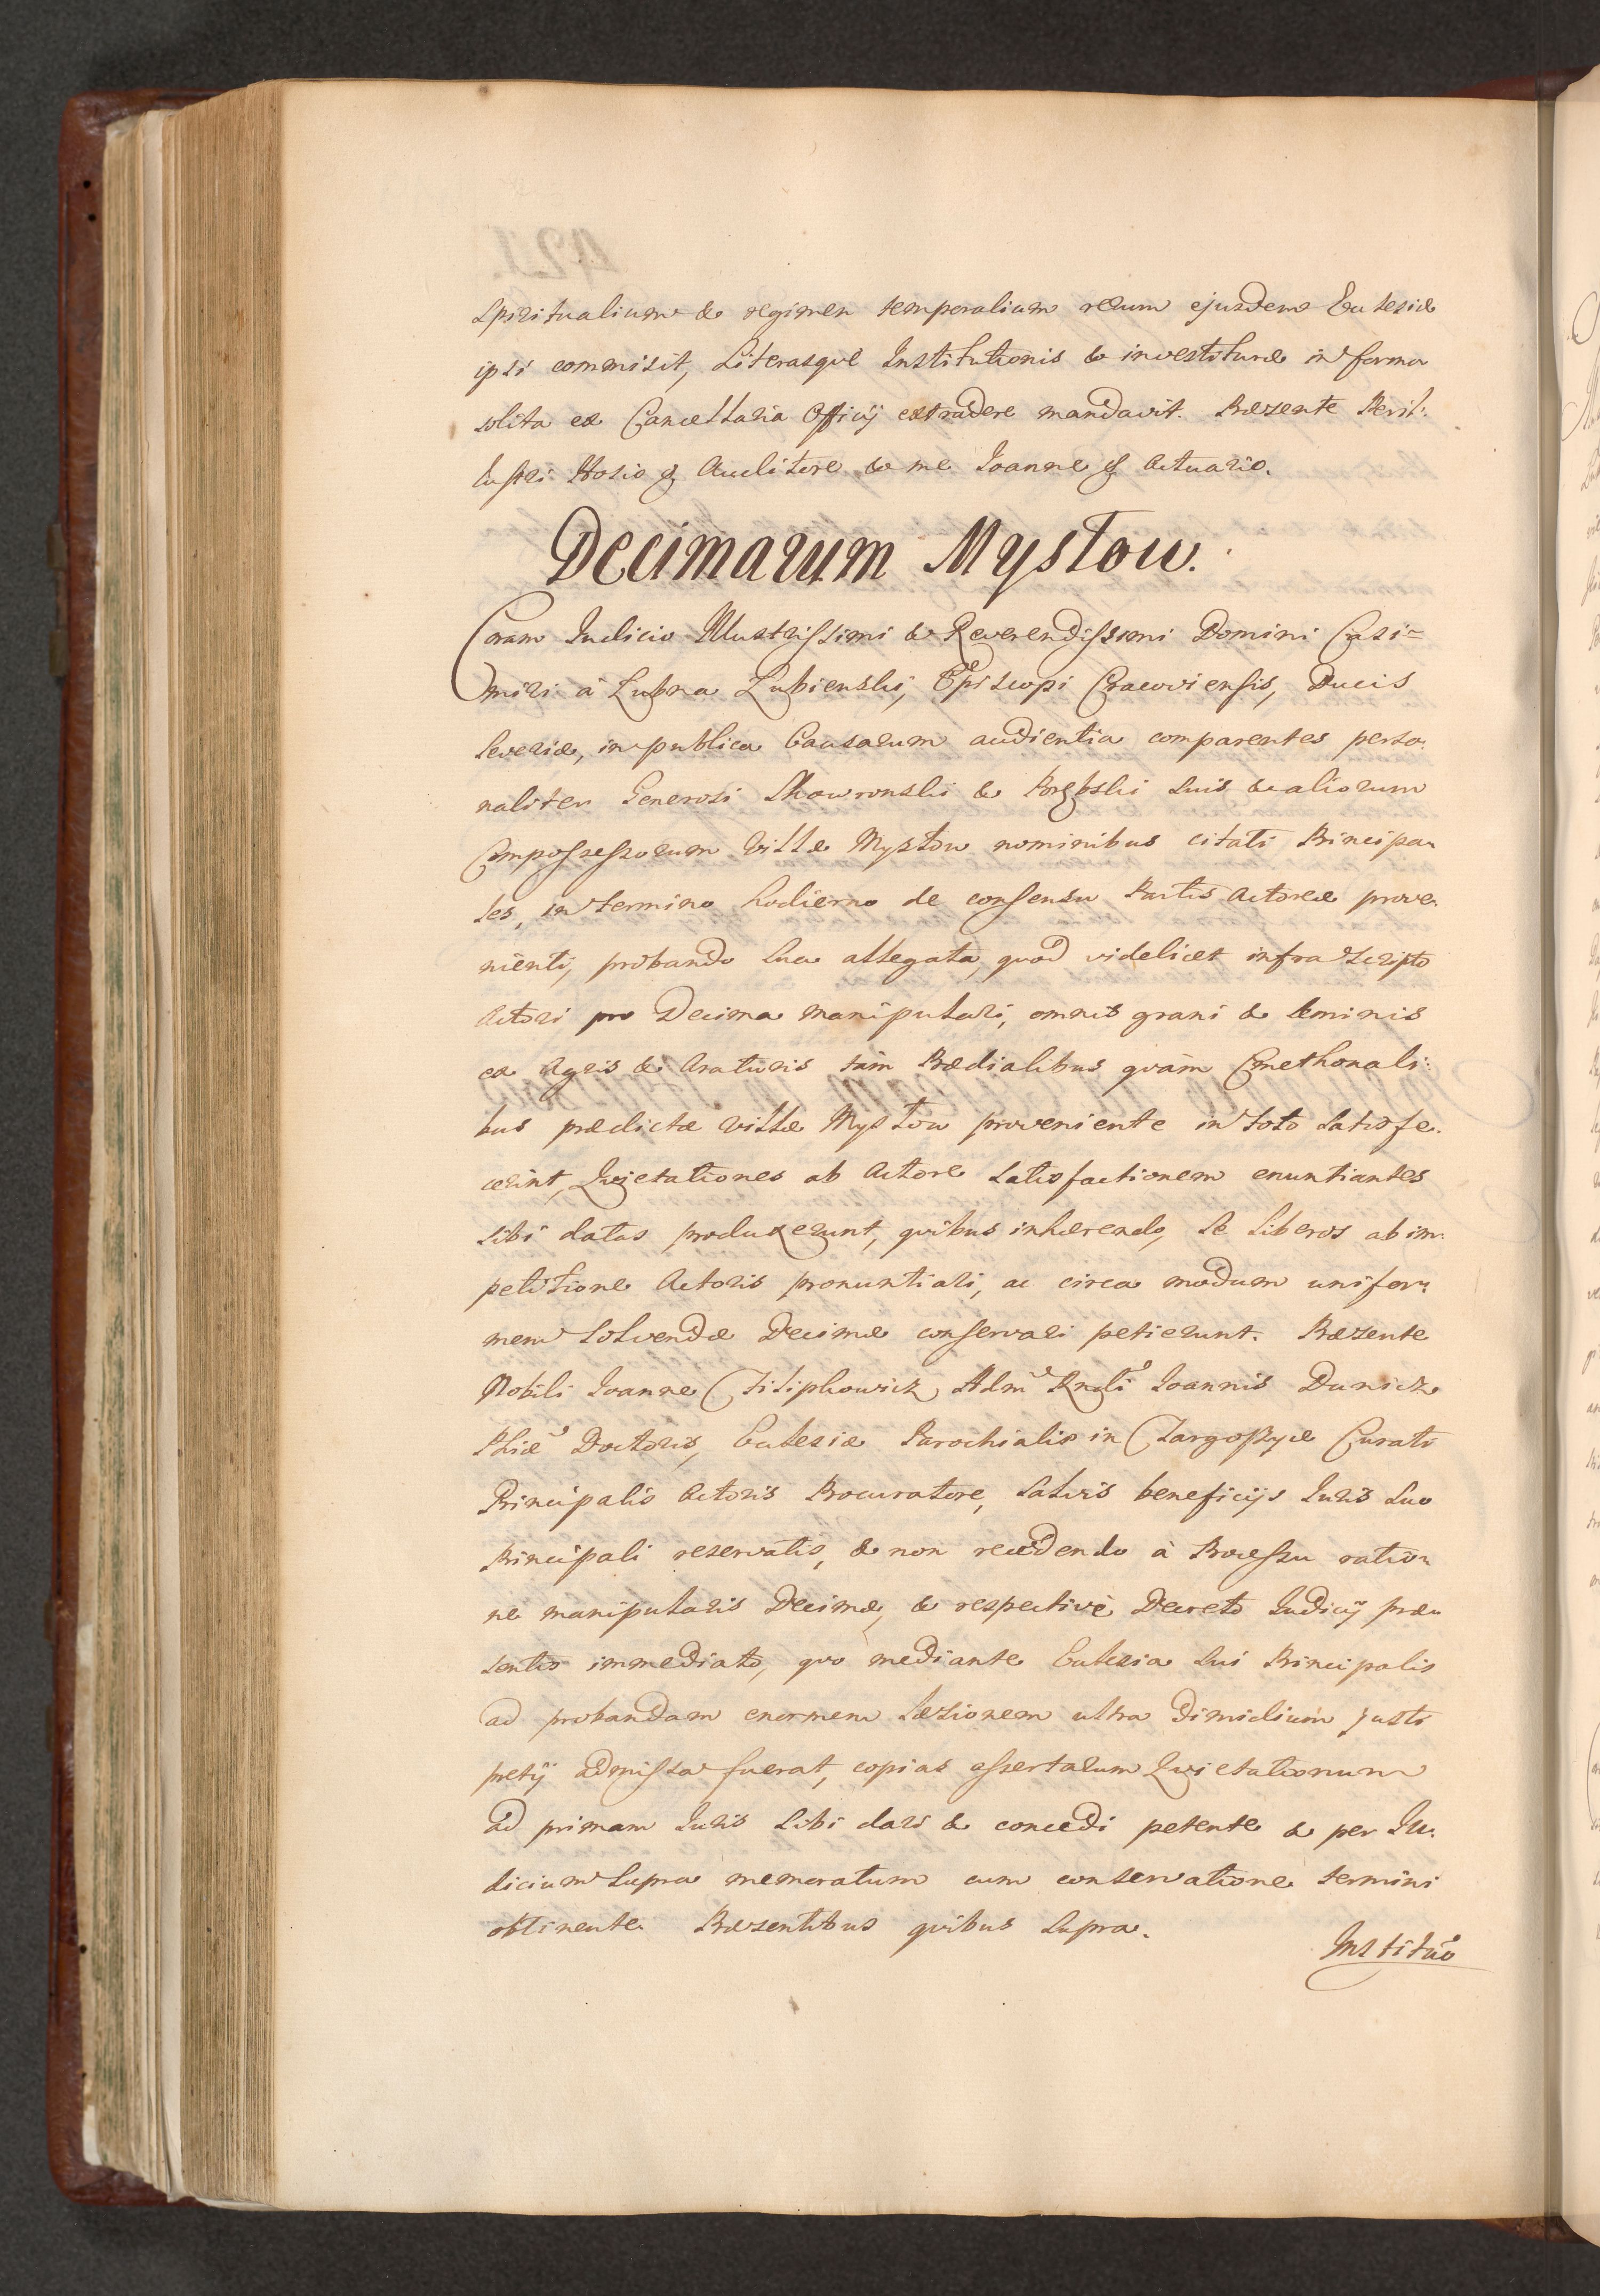 spiritualium & regimen temporalium rerum ejusdem Ecclesiæ
ipsi commisit, Literasque Institutionis & investituræ in forma
solita ex Cancellaria Officij extradere mandavit. Præsente Peril:
lustri Hosio q Auditore & me Ioanne q Actuario.
Decimarum Mystow.
Coram Iudicio Illustrissimi & Reverendissimi Domini Casi=
miri à Lubna Lubienski, Episcopi Cracoviensis, Ducis
Severiæ, in publica Causarum audientia comparentes perso:
naliter Generosi Skowronski & Porębski suis & aliorum
Compossessorum Villæ Mystow nominibus citati Principa:
les, in termino hodierno de consensu Partis Actoreæ prove:
nienti, probando sua allegata, quod videlicet infrascripto
Actori pro Decima manipulari, omnis grani & seminis
ex Agris & Araturis tàm Prædialibus quàm Cmethonali:
bus prædictæ villæ Mystow proveniente in toto satisfe:
cerint, Quietationes ab Actore satisfactionem enuntiantes
sibi datas produxerunt, quibus inhærendo, se liberos ab im:
petitione Actoris pronuntiari, ac circa modum unifor:
mem solvendæ Decimæ conservari petierunt. Præsente
Nobili Ioanne Filiphowicz Adm Rndi Ioannis Danicz
Phiæ Doctoris, Ecclesiæ Parochialis in Targoszyce Curati
Principalis Actoris Procuratore, salvis beneficijs Iuris suo
Principali reservatis, & non recedendo à Processu ratio:
ne manipularis Decimæ, & respectivè Decreto Iudicij præ:
sentis immediato, quo mediante Ecclesia sui Principalis
ad probandam enormem læsionem ultra dimidium justi
pretij admissa fuerat, copias assertarum Quietationum
ad primam Iuris sibi dari & concedi petente & per Iu:
dicium supra memoratum cum conservatione termini
obtinente. Præsentibus quibus supra.
Institutio